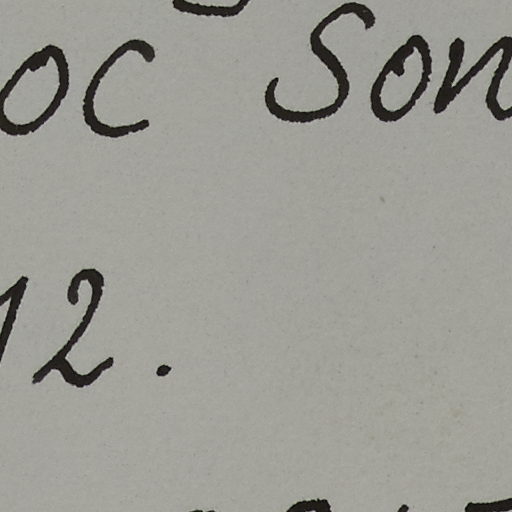 oc son
12.